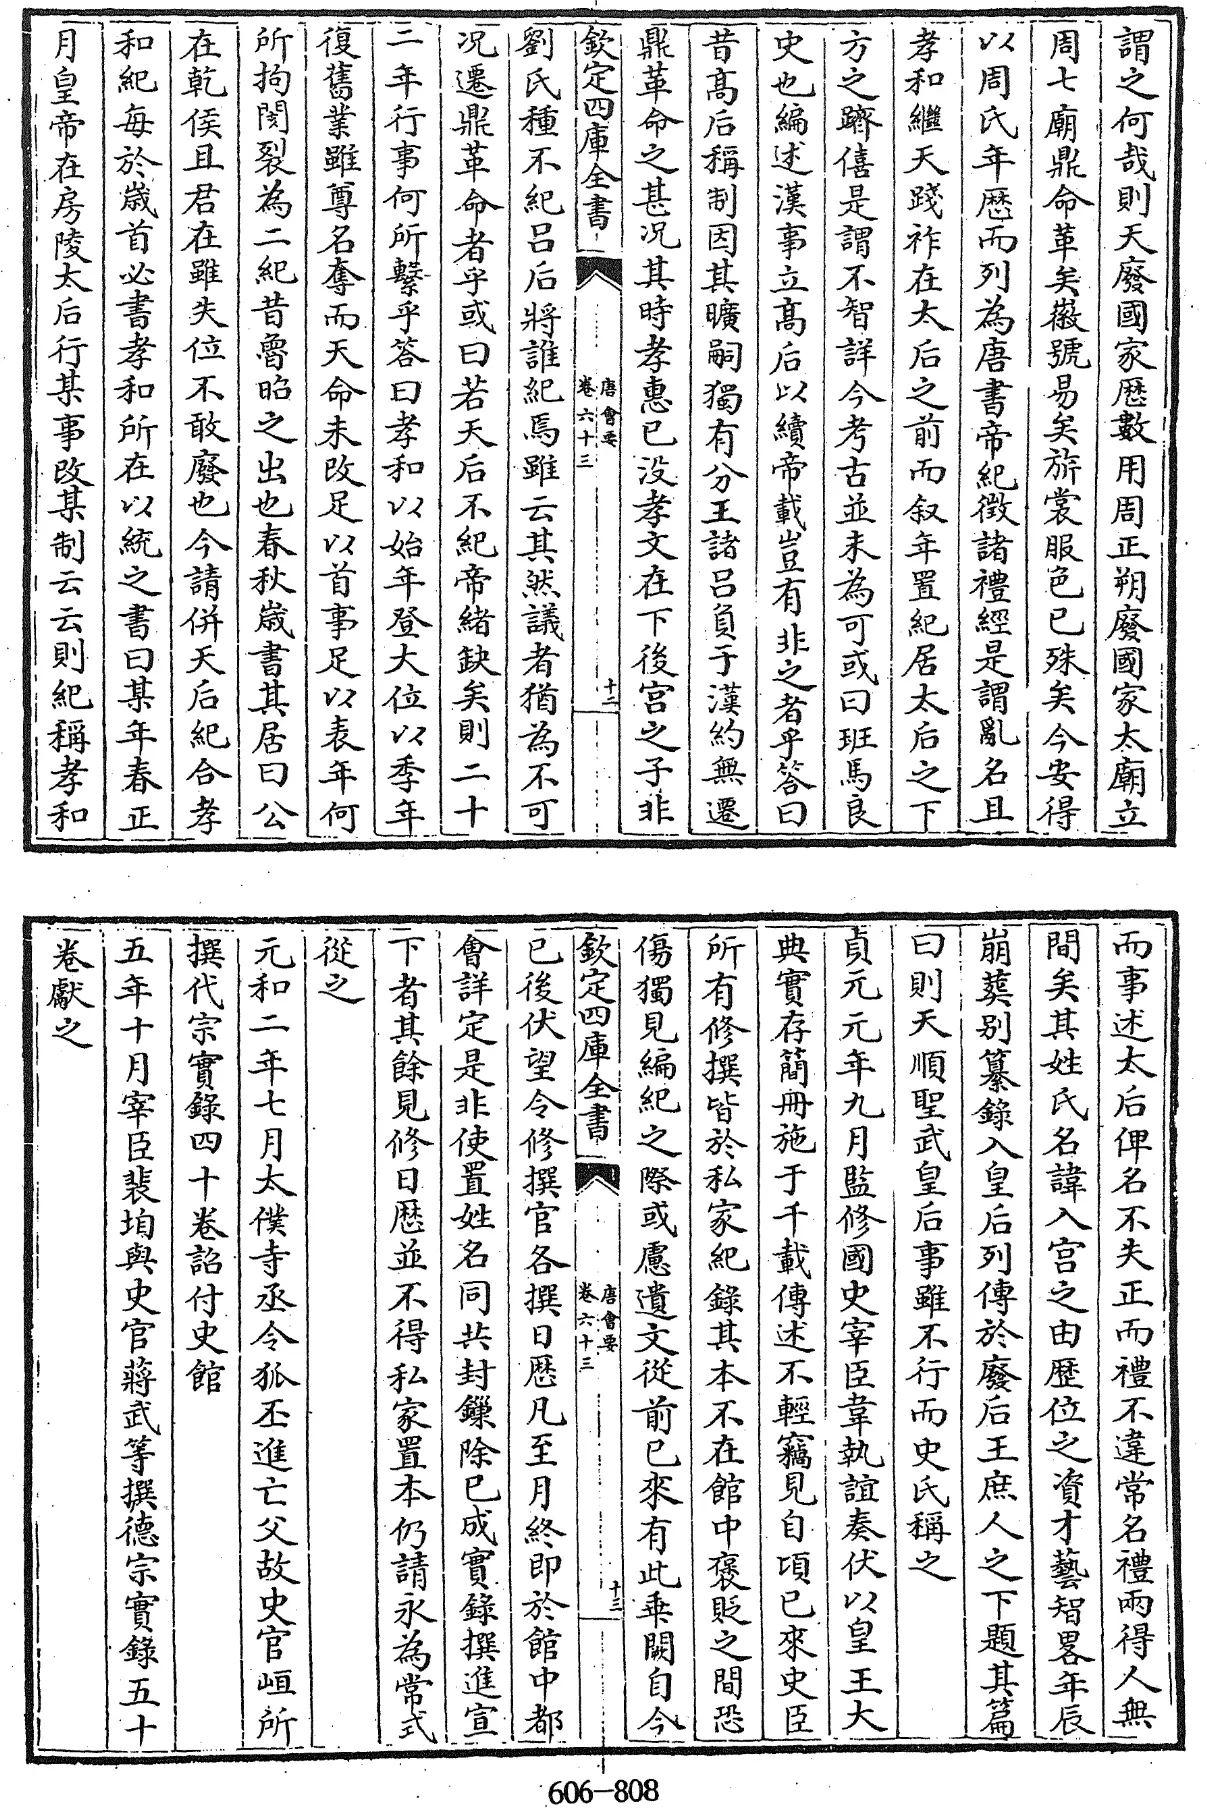 謂之何哉則天廢國家歴數用周正朔廢國家太廟立
周七廟鼎命革矣徽號易矣旂裳服色已殊矣今安得
以周氏年歴而列為唐書帝紀徵諸禮經是謂亂名且
孝和繼天踐祚在太后之前而叙年置紀居太后之下
方之躋僖是謂不智詳今考古並未為可或曰班馬良
史也編述漢事立髙后以續帝載豈有非之者乎答曰
昔髙后稱制因其曠嗣獨有分王諸呂負于漢約無遷
鼎革命之甚况其時孝惠已没孝文在下後宫之子非
欽定四庫全書
唐會要
卷六十三
十二
劉氏種不紀呂后將誰紀焉雖云其然議者猶為不可
况遷鼎革命者乎或曰若天后不紀帝緒缺矣則二十
二年行事何所繫乎答曰孝和以始年登大位以季年
復舊業雖尊名奪而天命未改足以首事足以表年何
所拘閡裂為二紀昔魯昭之出也春秋歳書其居曰公
在乾侯且君在雖失位不敢廢也今請併天后紀合孝
和紀每於歳首必書孝和所在以統之書曰某年春正
月皇帝在房陵太后行某事改某制云云則紀稱孝和
而事述太后俾名不失正而禮不違常名禮兩得人無
間矣其姓氏名諱入宫之由歴位之資才藝智畧年辰
崩葬别纂錄入皇后列傳於廢后王庶人之下題其篇
曰則天順聖武皇后事雖不行而史氏稱之
貞元元年九月監修國史宰臣韋執誼奏伏以皇王大
典實存簡冊施于千載傳述不輕竊見自頃已來史臣
所有修撰皆於私家紀錄其本不在館中褒貶之間恐
傷獨見編紀之際或慮遺文從前已來有此乖闕自今
欽定四庫全書
唐會要
卷六十三
十三
已後伏望令修撰官各撰日歴凡至月終即於館中都
會詳定是非使置姓名同共封鏁除已成實錄撰進宣
下者其餘見修日歴並不得私家置本仍請永為常式
從之
元和二年七月太僕寺丞令狐丕進亡父故史官峘所
撰代宗實錄四十卷詔付史館
五年十月宰臣裴垍與史官蔣武等撰德宗實錄五十
卷獻之
606-808